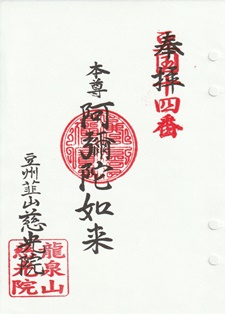 奉拝
十四番
本尊 阿彌陀如来
豆州韮山 慈光院
龍泉山
慈光院